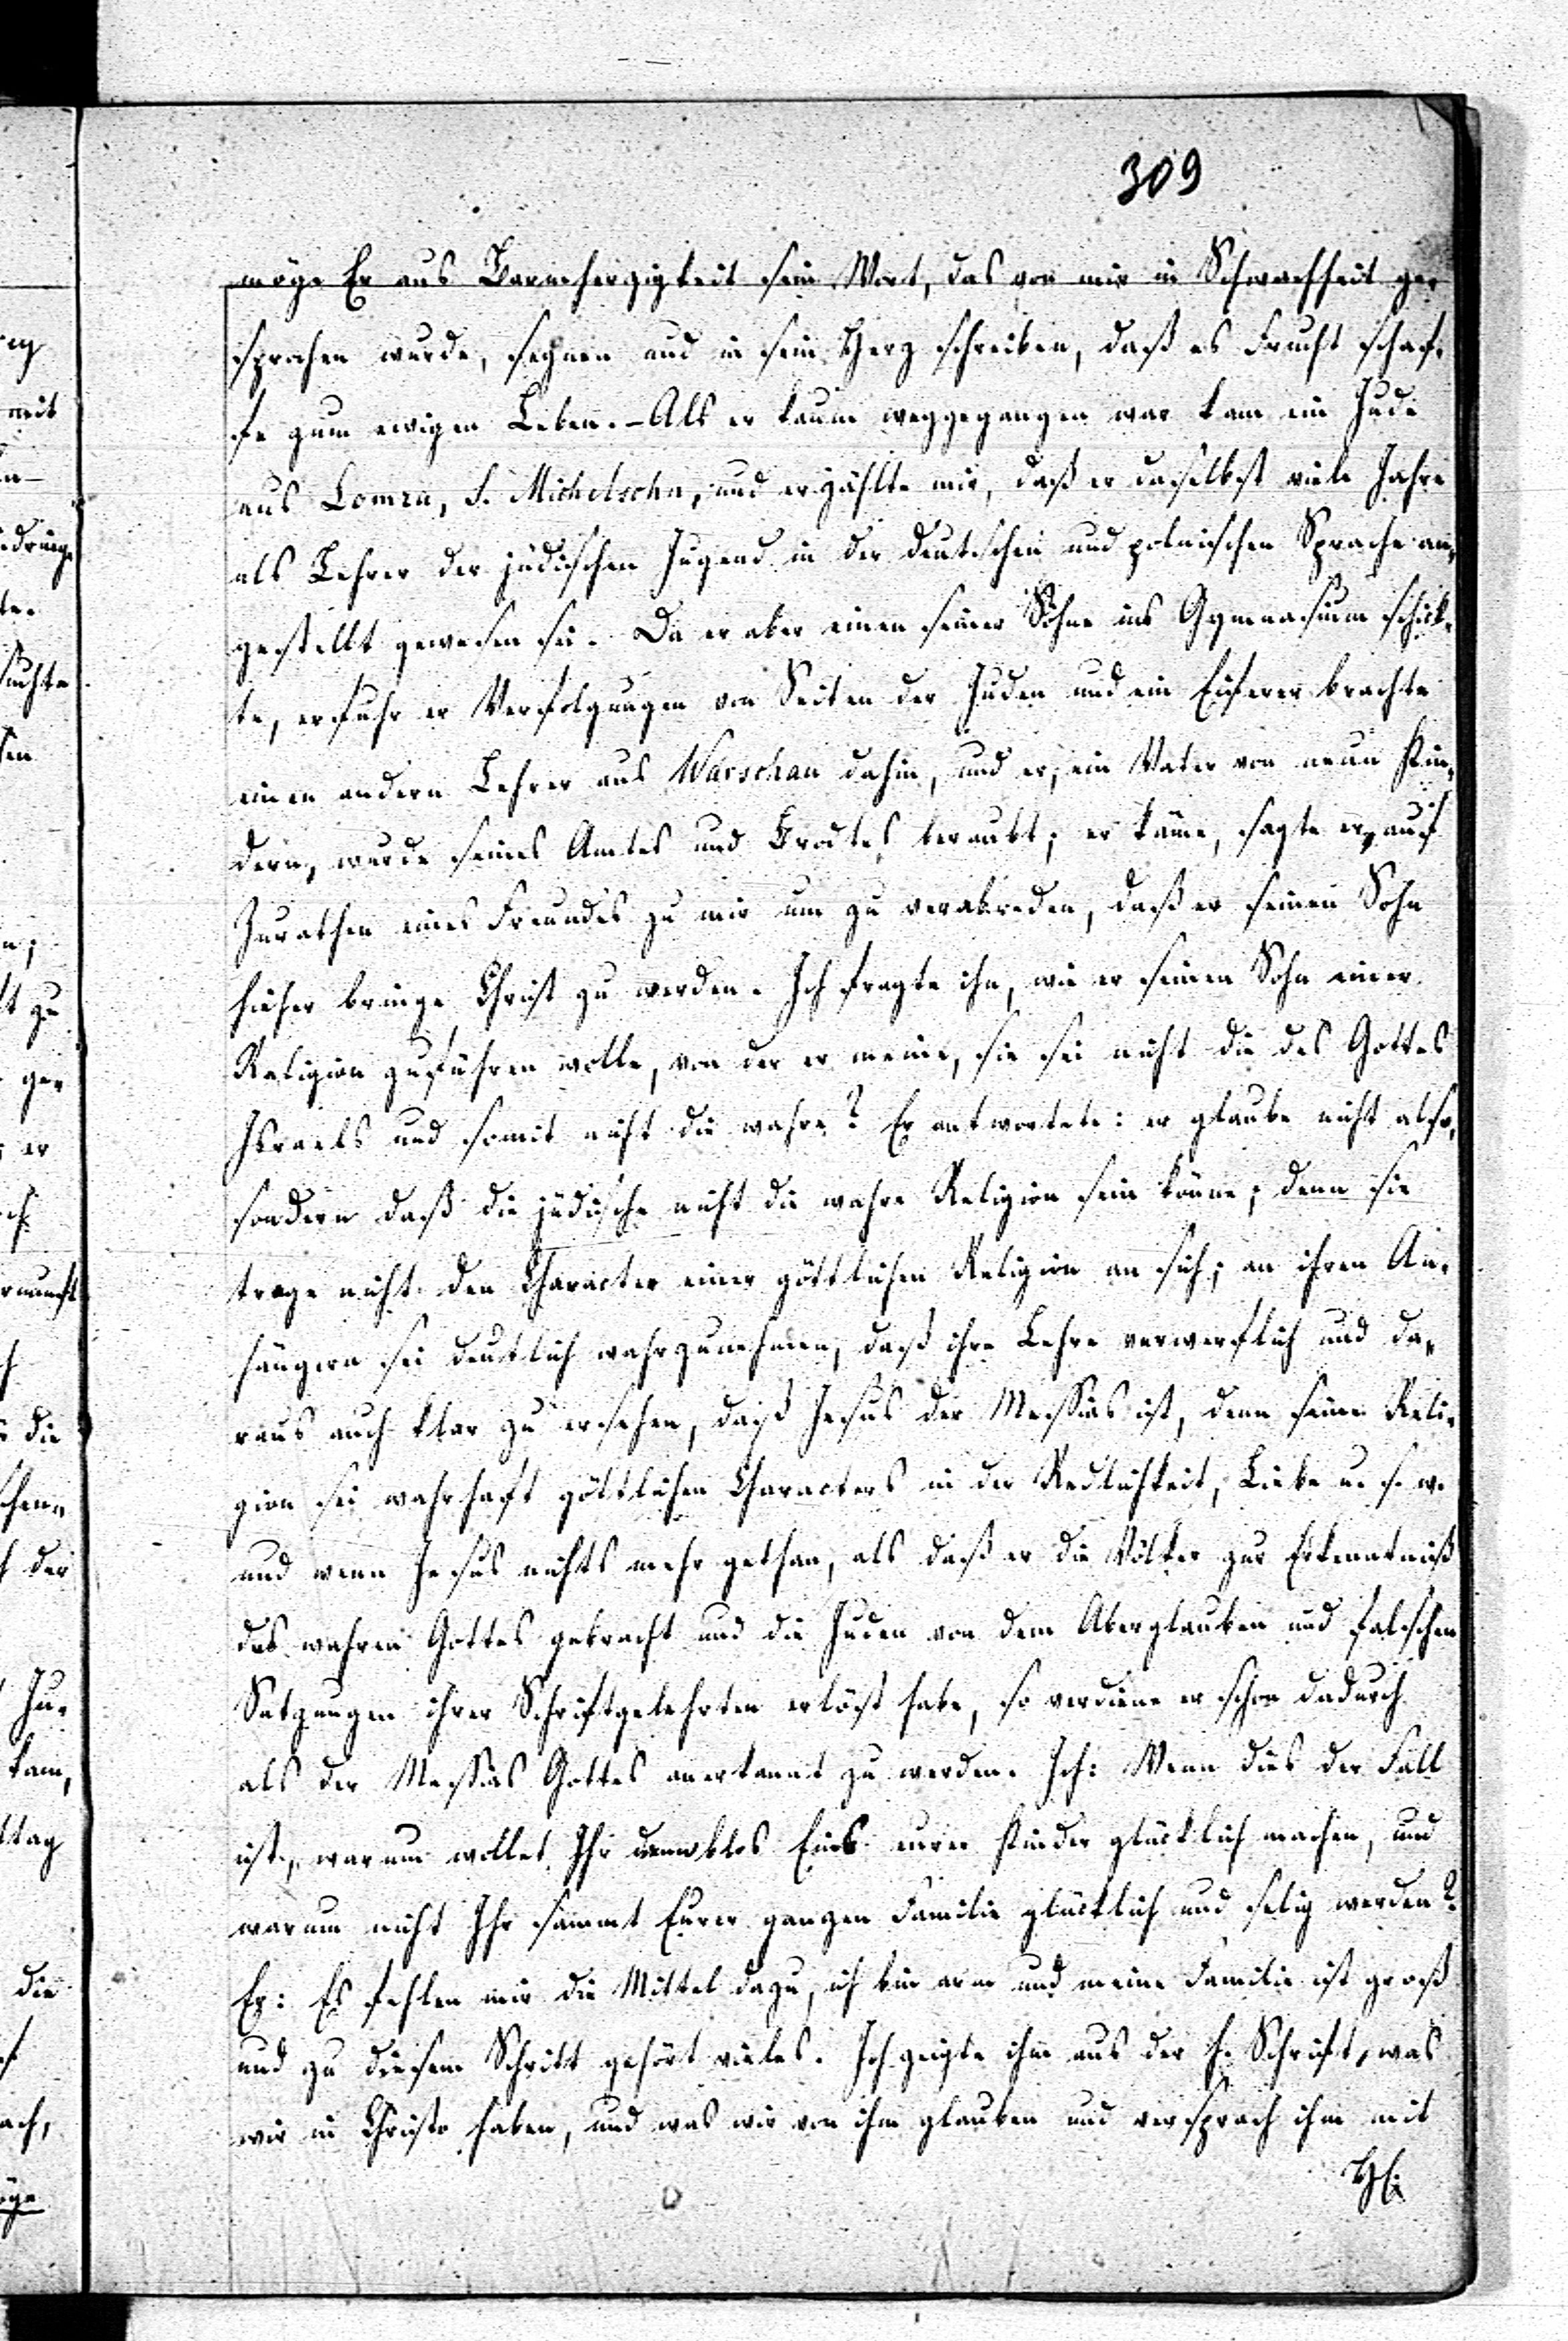 309
möge Er aus Barmherzigkeit sein Wort, das von mir in Schwachheit ge-
sprochen wurde, segnen und in sein Herz schreiben, daß es Frucht schaf-
fe zum ewigen Leben. – Als er kaum weggegangen war kam ein Jude
aus Lomza, S. Michelsohn, und erzählte mir, daß er daselbst viele Jahre
als Lehrer der jüdischen Jugend in der deutschen und polnischen Sprache an-
gestellt gewesen sei. Da er aber einen seiner Söhne ins Gymnasium schick-
te, erfuhr er Verfolgungen von Seiten der Juden und ein Eiferer brachte
einen andern Lehrer aus Warschau dahin, und er, ein Vater von neun Kin-
dern, wurde seines Amtes und Brodtes beraubt; er käme, sagte er, auf
Zurathen eines Freundes zu mir um zu verabreden, daß er seinen Sohn
hieher bringe Christ zu werden. Ich fragte ihn, wie er seinen Sohn einer
Religion zuführen wolle, von der er meine, sie sei nicht die des Gottes
Israels und somit nicht die wahre? Er antwortete: er glaube nicht also,
sondern daß die jüdische nicht die wahre Religion sein könne; denn sie
trage nicht den Character einer göttlichen Religion an sich; an ihren An-
hängern sei deutlich wahrzunehmen, daß ihre Lehre verwerflich und da-
raus auch klar zu ersehen, daß Jesus der Messias ist, denn seine Reli-
gion sei wahrhaft göttlichen Characters in der Redlichkeit, Liebe u. s. w.
und wenn Jesus nichts mehr gethan, als daß er die Völker zur Erkenntniß
des wahren Gottes gebracht und die Juden von dem Aberglauben und falschen
Satzungen ihrer Schriftgelehrten erlöst habe, so verdiene er schon dadurch
als der Messias Gottes anerkannt zu werden. Ich: Wenn dies der Fall
ist, warum wollet Ihr denn blos Eins eurer Kinder glücklich machen, und
warum nicht Ihr sammt Eurer ganzen Familie glücklich und selig werden?
Er: Es fehlen mir die Mittel dazu, ich bin arm und meine Familie ist groß
und zu diesem Schritt gehört vieles. Ich zeigte ihm aus der h. Schrift, was
wir in Christo haben, und was wir von ihm glauben und versprach ihm mit